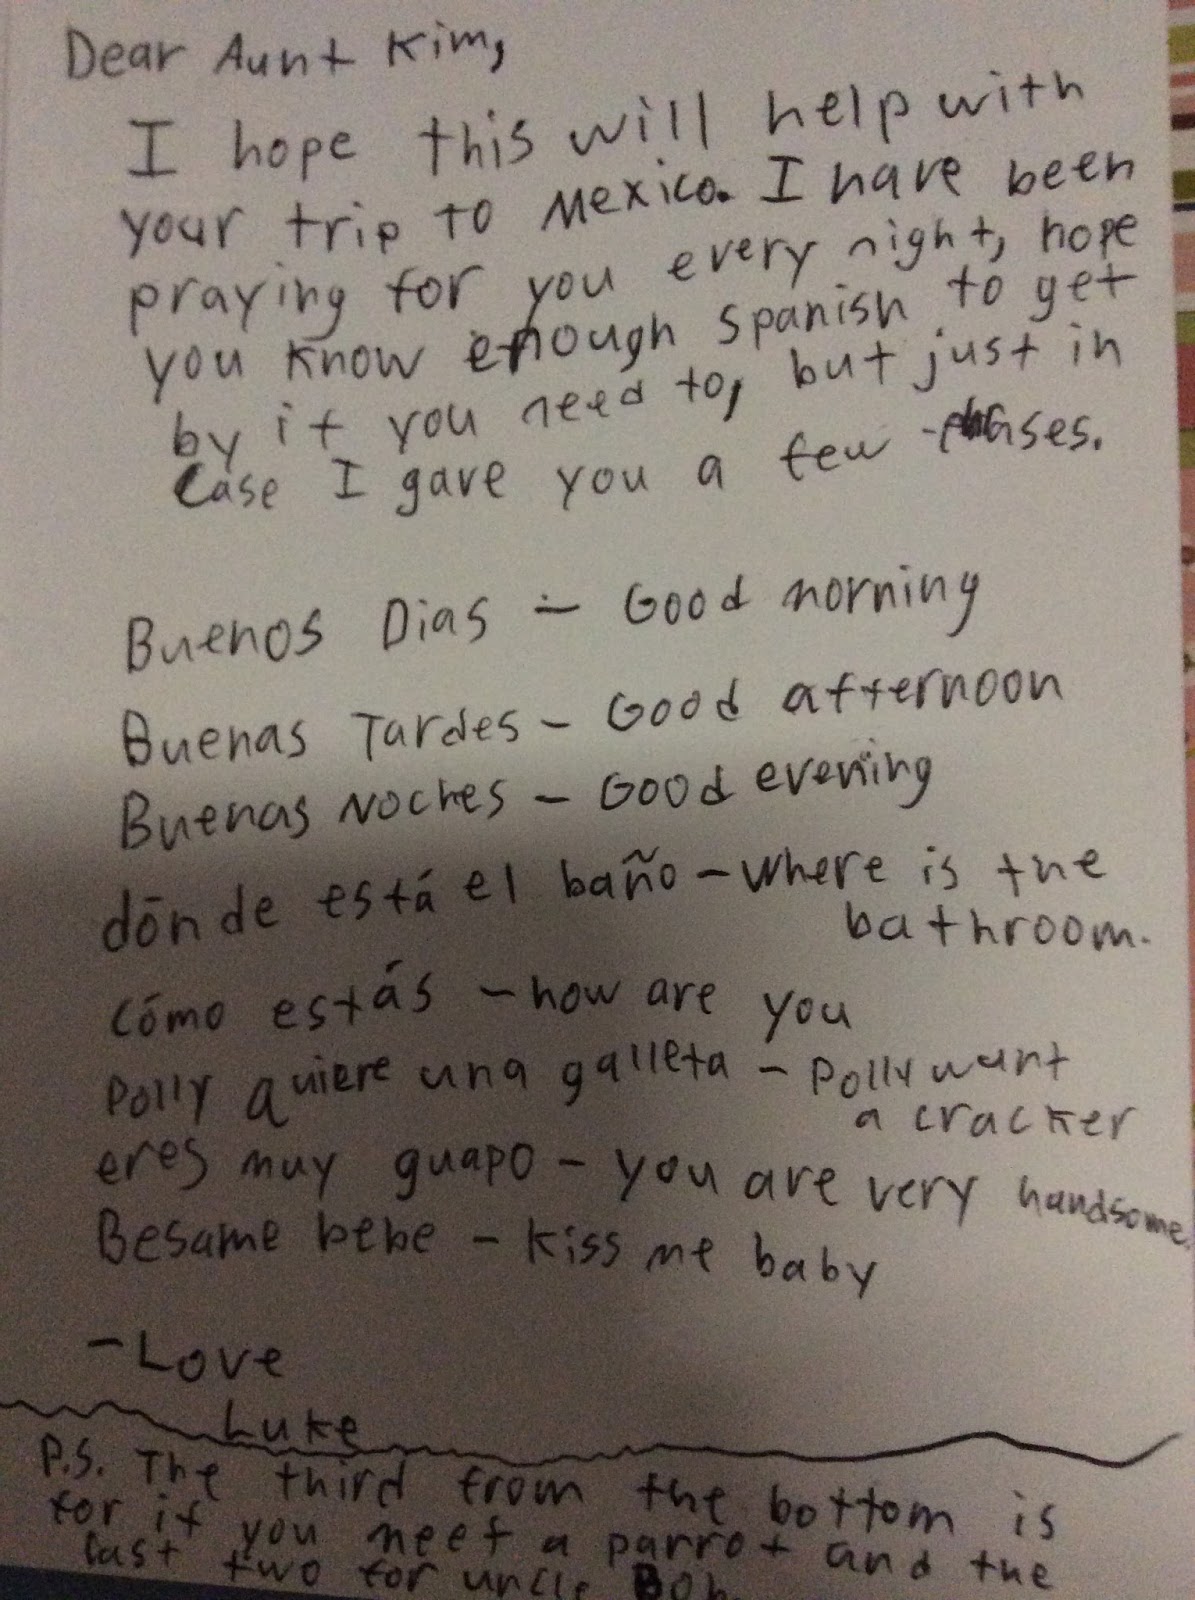 Dear Aunt Kim,
I hope this will help with
your trip to Mexico. I have been
praying for you every night, hope
you know enough spanish to get
by if you need to, but just in
case I gave you a few phases.
Buenos Dias - Good morning
Buenas Tardes - Good afternoon
Buenas Noches - Good evening
dónde está el baño - where is the
bathroom.
cómo estás - how are you
Polly quiere una galleta - Polly want
a cracker
eres muy guapo - you are very handsome.
Besame bebe - kiss me baby
- Love
Luke
P.S. The third from the bottom is
for if you meet a parrot and the
last two for uncle Bob.